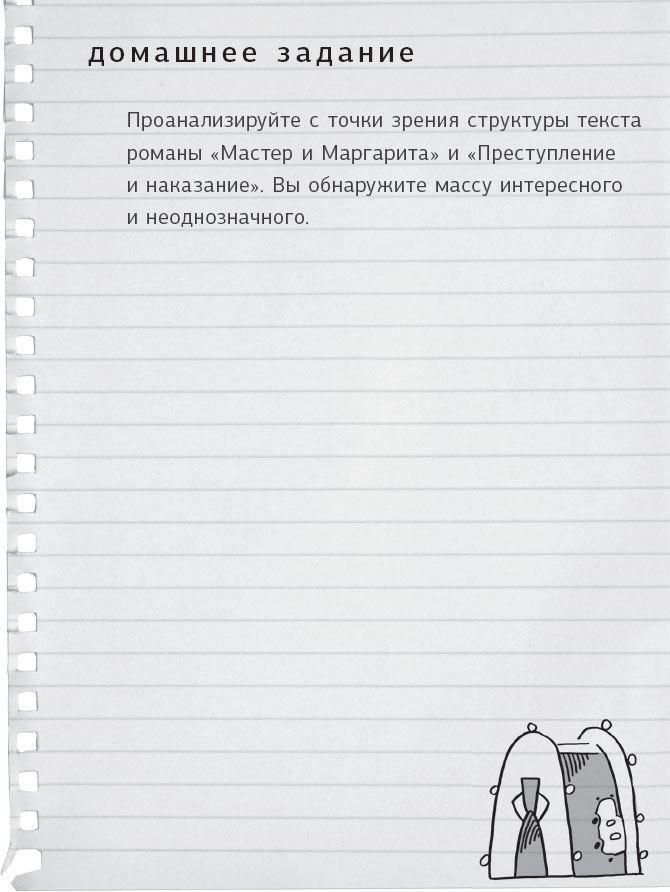 домашнее задание
Проанализируйте с точки зрения структуры текста
романы «Мастер и Маргарита» и «Преступление
и наказание». Вы обнаружите массу интересного
и неоднозначного.